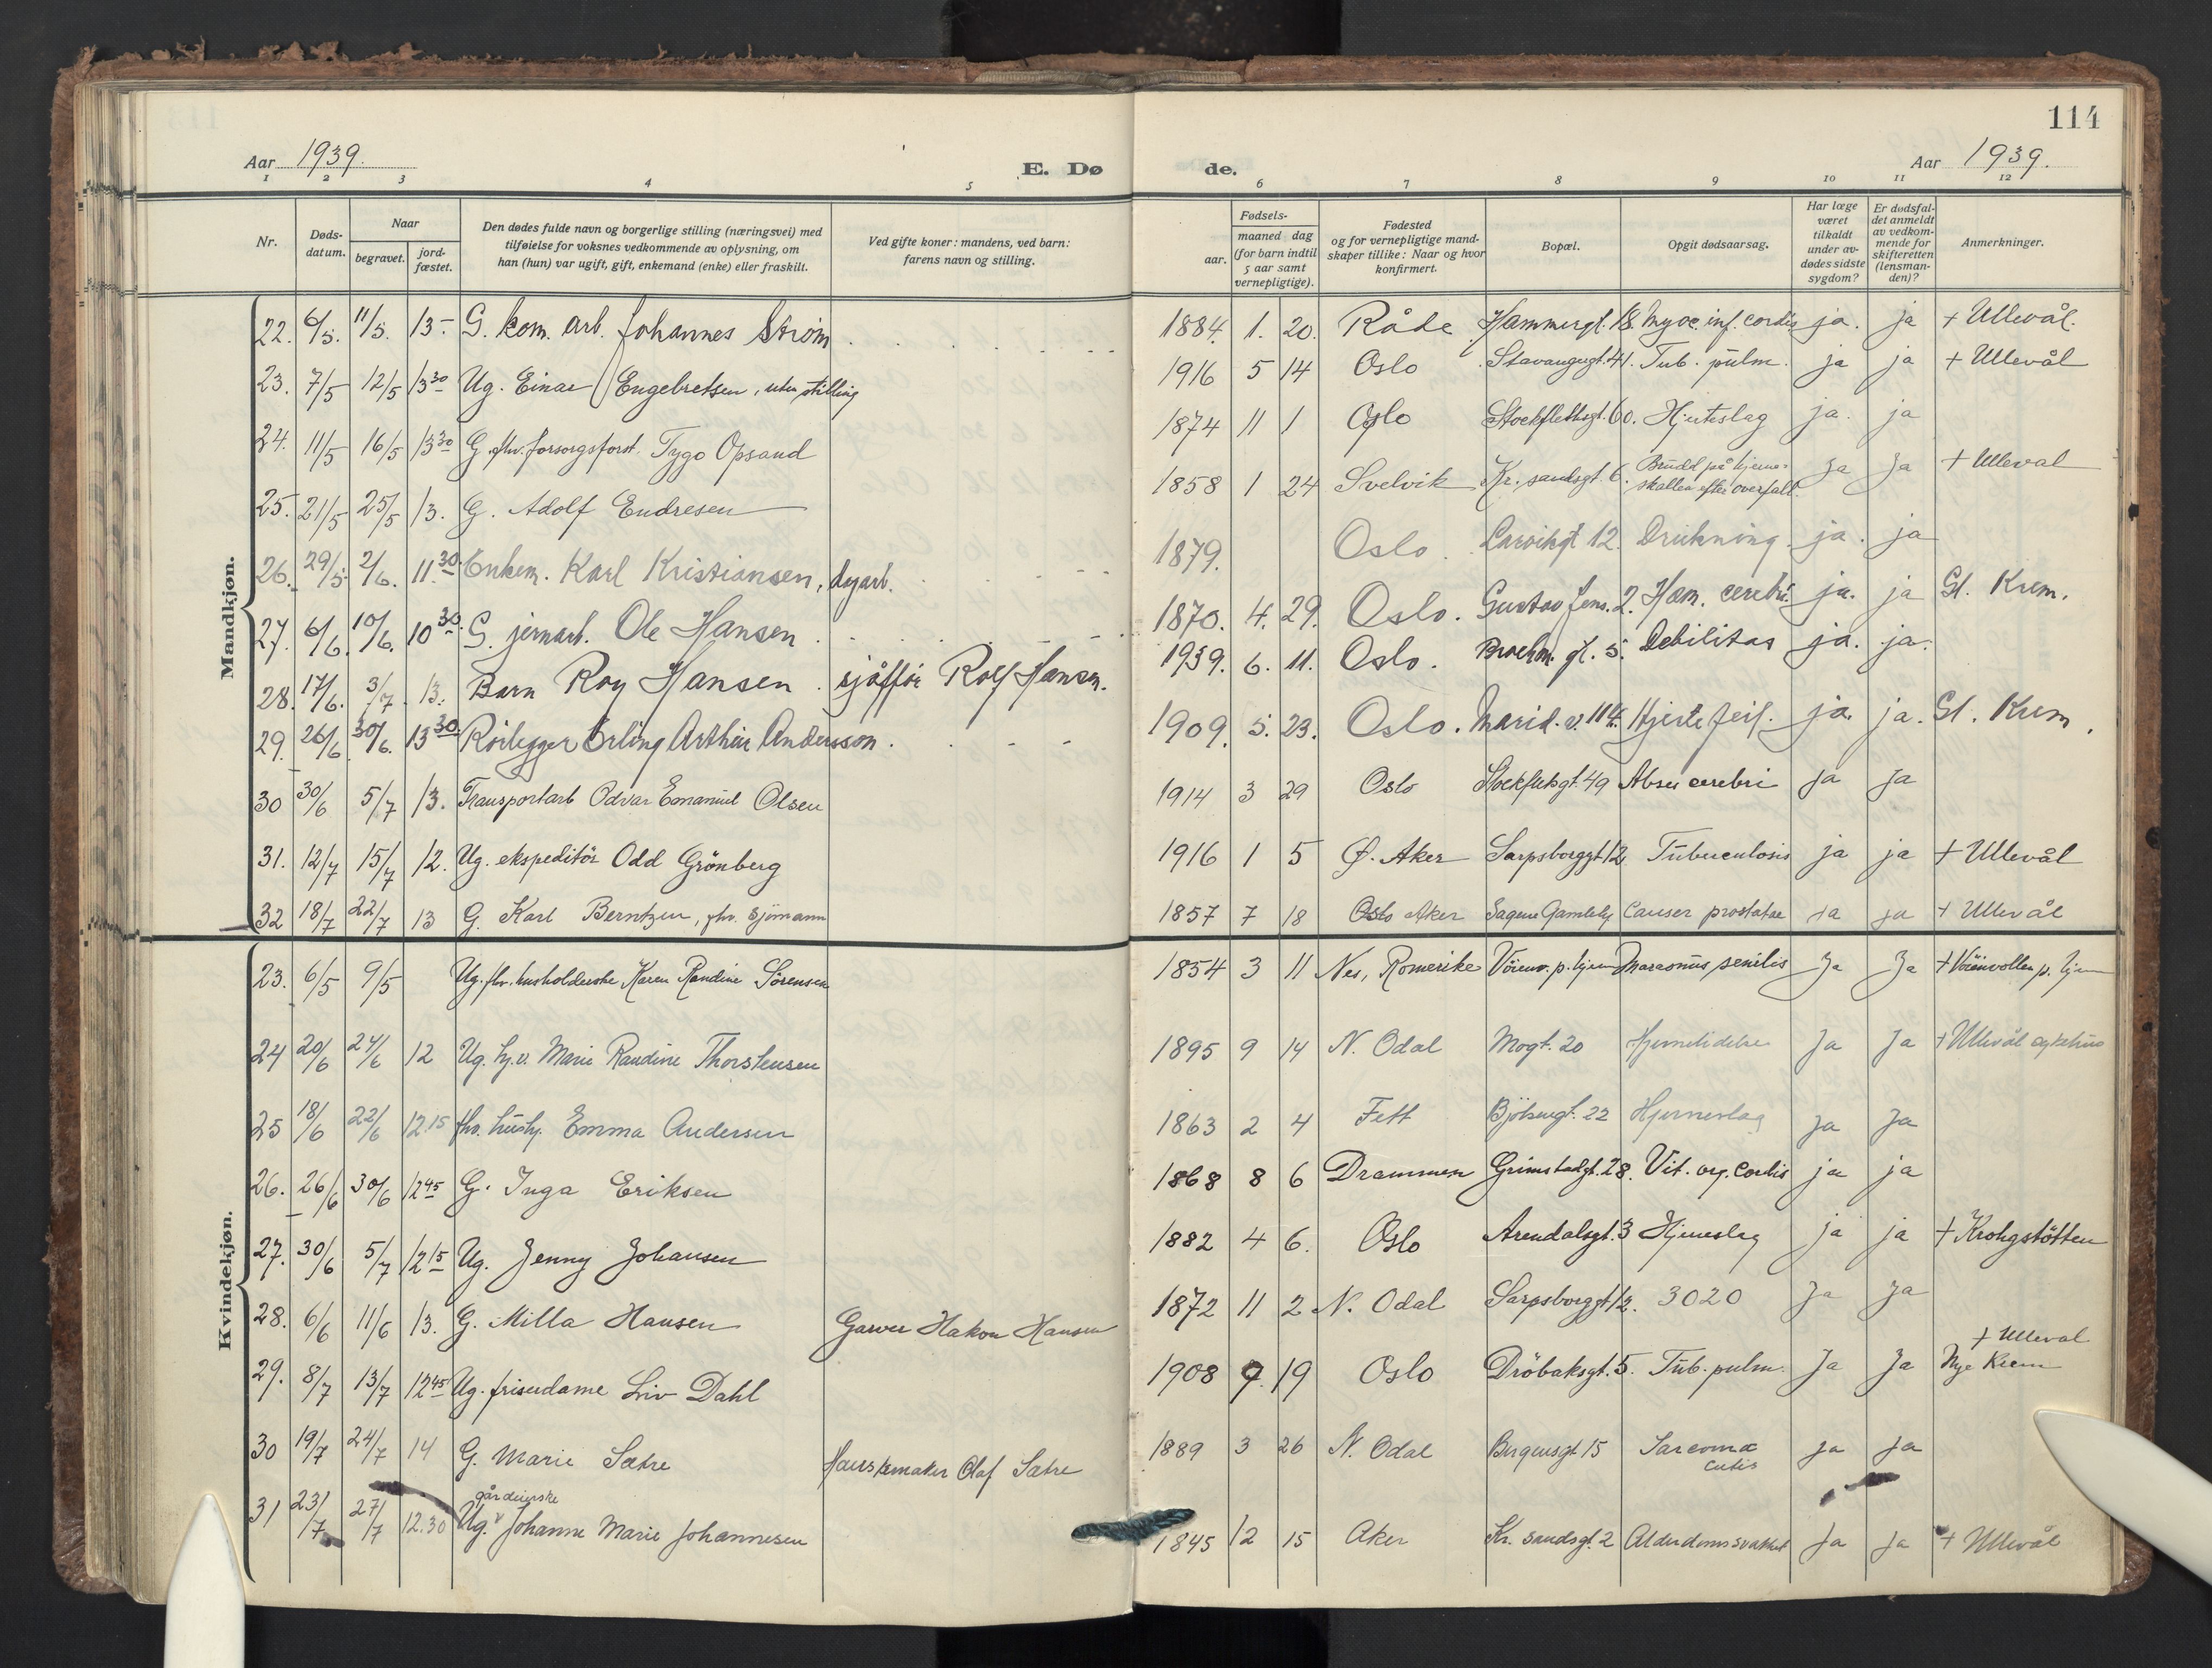 114
Aar 1939. E. Dø de. Aar 1939.
1 2 3 4 5 6 7 8 9 10 11 12
Nr.
Døds-
datum.
Naar
begravet.
jord-
fæstet.
Den dødes fulde navn og borgerlige stilling (næringsvei) med
tilføielse for voksnes vedkommende av oplysning, om
han (hun) var ugift, gift, enkemand (enke) eller fraskilt.
Ved gifte koner: mandens, ved barn:
farens navn og stilling.
Fødsels-
aar.
maaned dag
(for barn indtil
5 aar samt
vernepligtige).
Fødested
og for vernepligtige mand-
skaper tillike: Naar og hvor
konfirmert.
Bopæl.
Opgit dødsaarsag.
Har læge
været
tilkaldt
under av-
dødes sidste
sygdom?
Er dødsfal-
det anmeldt
av vedkom-
mende for
skifteretten
(lensman-
den)?
Anmerkninger.
Mandkjøn.
22. 6/5. 11/5. 13- G. kom. arb. Johannes Strøm 1884. 1. 20. Råde Hammergt. 18. Myoc. inf. cordis ja. ja + Ullevål.
23. 7/5 12/5 13 30 Ug. Einar Engebretsen, uten stilling 1916 5 14 Oslo Stavangergt. 41. Tub. pulm. ja ja + Ullevål
24. 11/5 16/5 13 30 G. fhv. forsorgsforst. Tygo Opsand 1874 11 1 Oslo Stockflethsgt. 60. Hjerteslag ja. ja
25. 21/5 25/5 13. G. Adolf Endresen 1858 1 24 Svelvik Kr. sandsgt. 6. Brudd på hjerne-
skallen efter overfall. Ja Ja + Ulleval
26. 29/5. 2/6. 11 30 Enkem. Karl Kristiansen, dagarb. 1879. Oslo. Larvikgt 12. Drukning ja. ja
27. 6/6. 10/6. 10 30. G. jernarb. Ole Hansen 1870. 4. 29. Oslo. Gustav Jens. 2. Hæm. cerebri. ja. ja Gl. Krem.
28. 17/6. 3/7 13. Barn Roy Hansen. sjåffør Rolf Hansen. 1939. 6. 11. Oslo. gt. 5. Debilitas ja. ja.
29. 26/6 30/6. 13 30 Rørlegger Erling Arthur Andersson. 1909. 5. 23. Oslo. Marid. v. 114. Hjertefeil. ja. ja. Gl. Krem.
30 30/6 5/7 13. Transportarb Odvar Emanuel Olsen 1914 3 29 Oslo Stockfletsgt. 49 Abses cerebri ja ja
31. 12/7 15/7 12. Ug. ekspeditør Odd Grönberg 1916 1 5 Ø. Aker Sarpsborggt 12 Tuberculosis ja ja + Ullevål
32 18/7 22/7 13 G. Karl Berntzen, fhv. sjömann 1857 7 18 Oslo Aker Sagene Gamlehj. Cancer prostatae ja ja + Ullevål
Kvindekjøn.
23. 6/5 9/5 Ug. fhv. husholderske Karen Randine Sörensen 1854 3 11 Nes, Romerike Vöienv. p. hjem Marasmus senilis Ja Ja + Vöienvollen p. hjem
24 20/6 24/6 12 Ug. hj.v. Marie Randine Thorstensen 1895 9 14 N. Odal Mogt. 20 Hjernelidelse Ja Ja + Ullevål sykehus
25 18/6 22/6 12.15 fhv. hush. Emma Andersen 1863 2 4 Fett Bjölsengt. 22 Hjerneslag Ja Ja
26. 26/6 30/6 12 45 G. Inga Eriksen 1868 8 6 Drammen Grimstadgt. 28. Vit. org. Cordis ja ja
27. 30/6 5/7 12 15 Ug. Jenny Johansen 1882 4 6. Oslo Arendalsgt. 3 Hjerneslag ja ja + Krohgstötten
28. 6/6 11/6 13. G. Milla Hansen Garver Hakon Hansen 1872 11 2 N. Odal Sarpsborggt 12. 3020 Ja Ja
29. 8/7 13/7 12 45 Ug. friserdame Liv Dahl 1908 9. 19 Oslo Dröbaksgt. 5. Tub. pulm. Ja Ja + Ulleval
Nye Krem
30 19/7 24/7 14 G. Marie Sætre Hanskemaker Olaf Sætre 1889 3 26 N. Odal Bergensgt 15 Sarcoma
cutis ja ja
31 23/7 27/7 12.30 Ug. gårdeierske Johanne Marie Johannesen 1845 12 15 Aker Kr. sandsgt. 2 Alderdomssvakhet Ja Ja + Ullevål